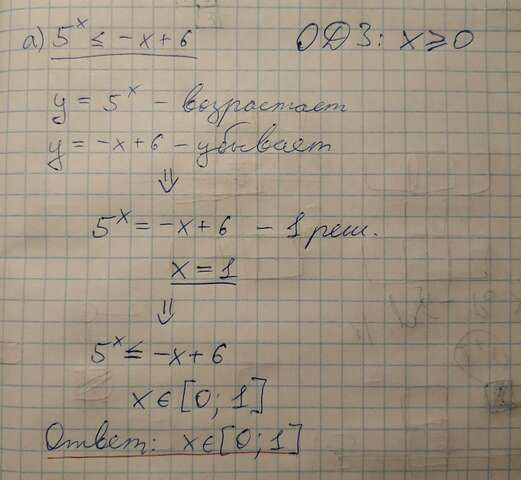 а) 5^x ≤ -x+6 ОДЗ: x ≥ 0
y = 5^x - возрастает
y = -x+6 - убывает
⇓
5^x = -x+6 - 1 реш.
x = 1
⇓
5^x ≤ -x+6
x ∈ [0; 1]
Ответ: x ∈ [0; 1]